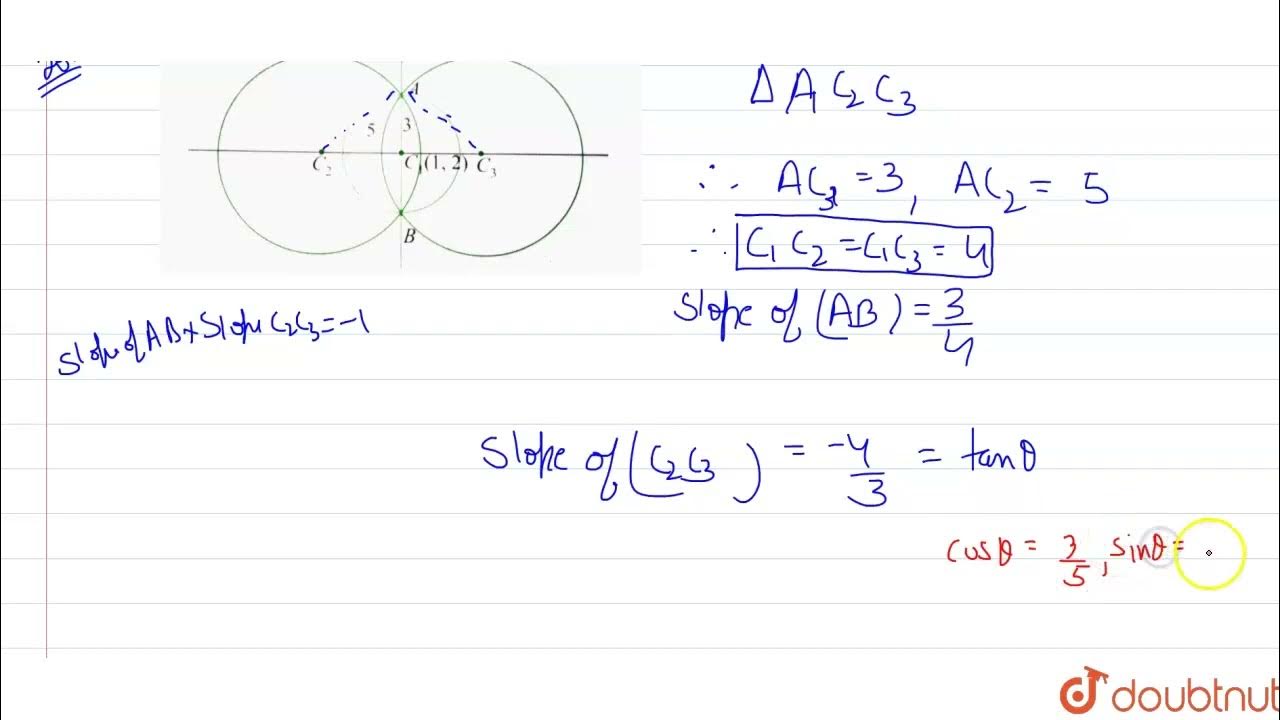 A
5 3
C₂ C₁(1, 2) C₃
B
Δ A C₂ C₃
∴ AC₃ = 3, AC₂ = 5
∴ C₁ C₂ = C₁C₃ = 4
Slope of (AB) = 3/4
Slope of AB × Slope C₂C₃ = -1
Slope of (C₂C₃) = -4/3 = tanθ
cosθ = 3/5, sinθ =
doubtnut